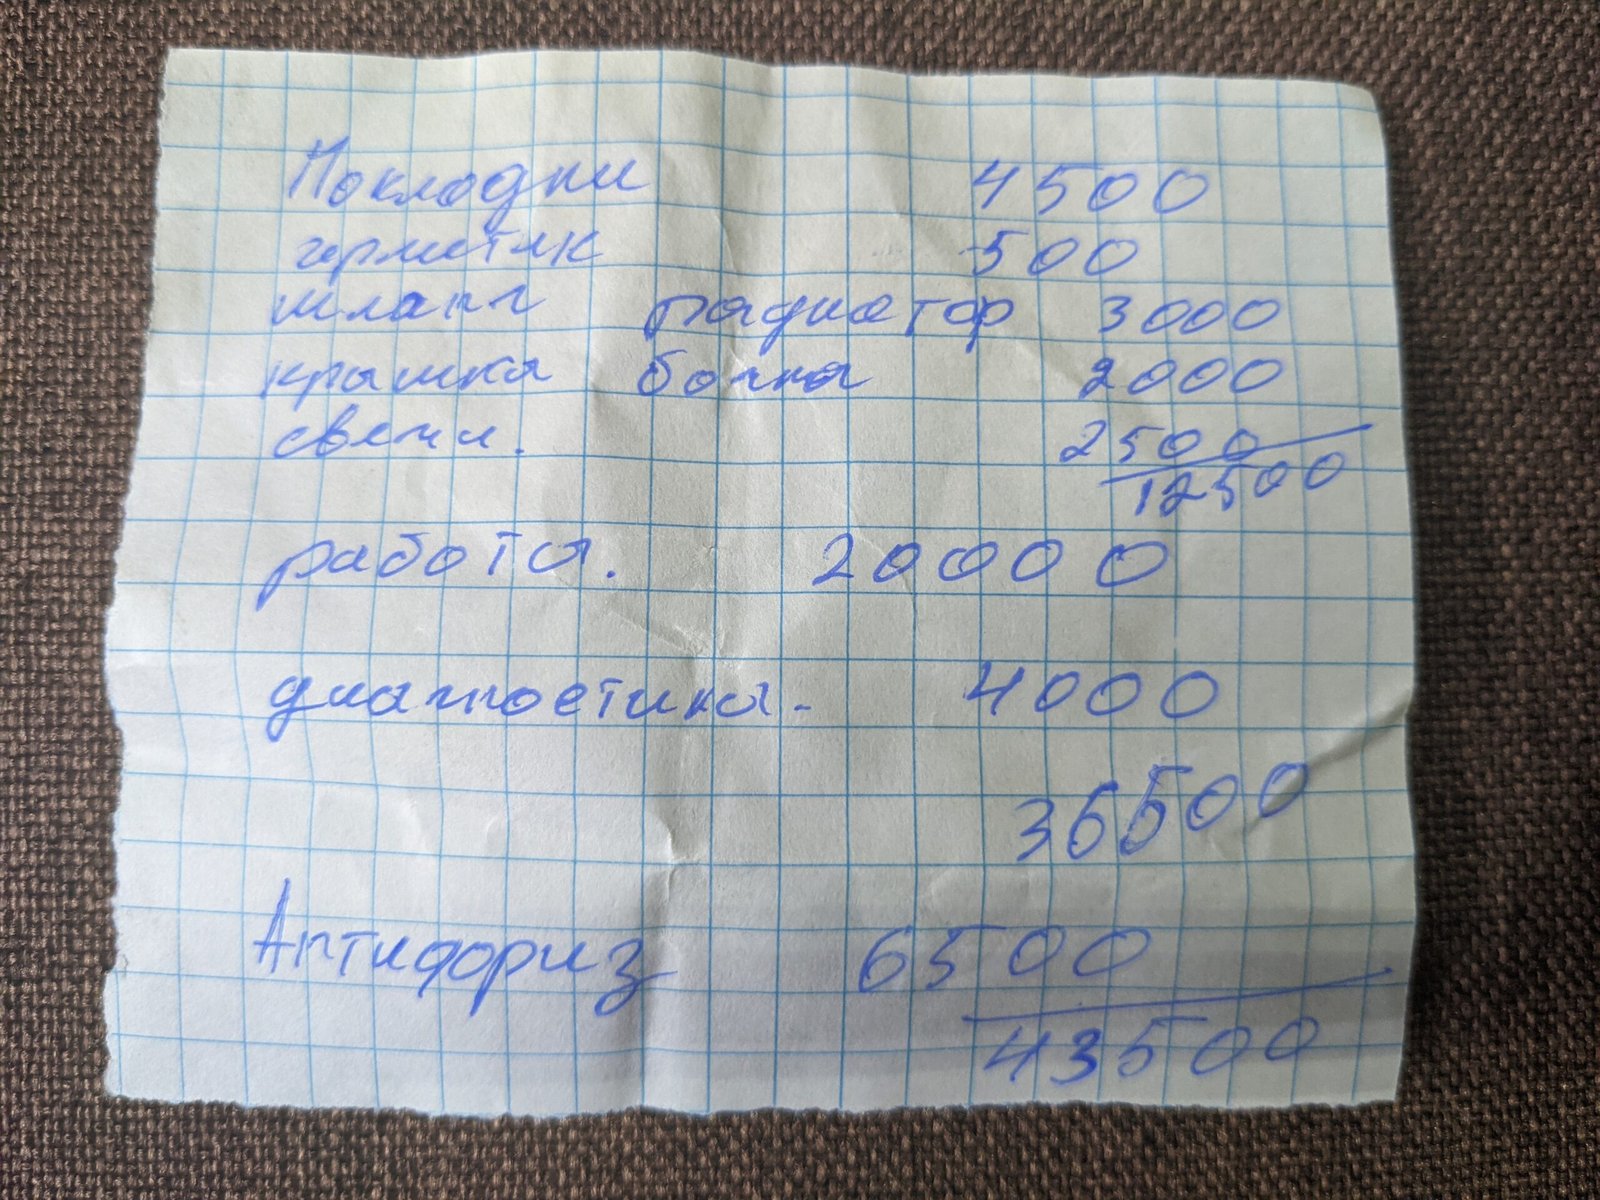 Покладки 4500
герметик 500
шланг радиатор 3000
крышка бочка 2000
свечи. 2500
12500
работа. 20000
диагностика - 4000
36500
Антифориз 6500
43500